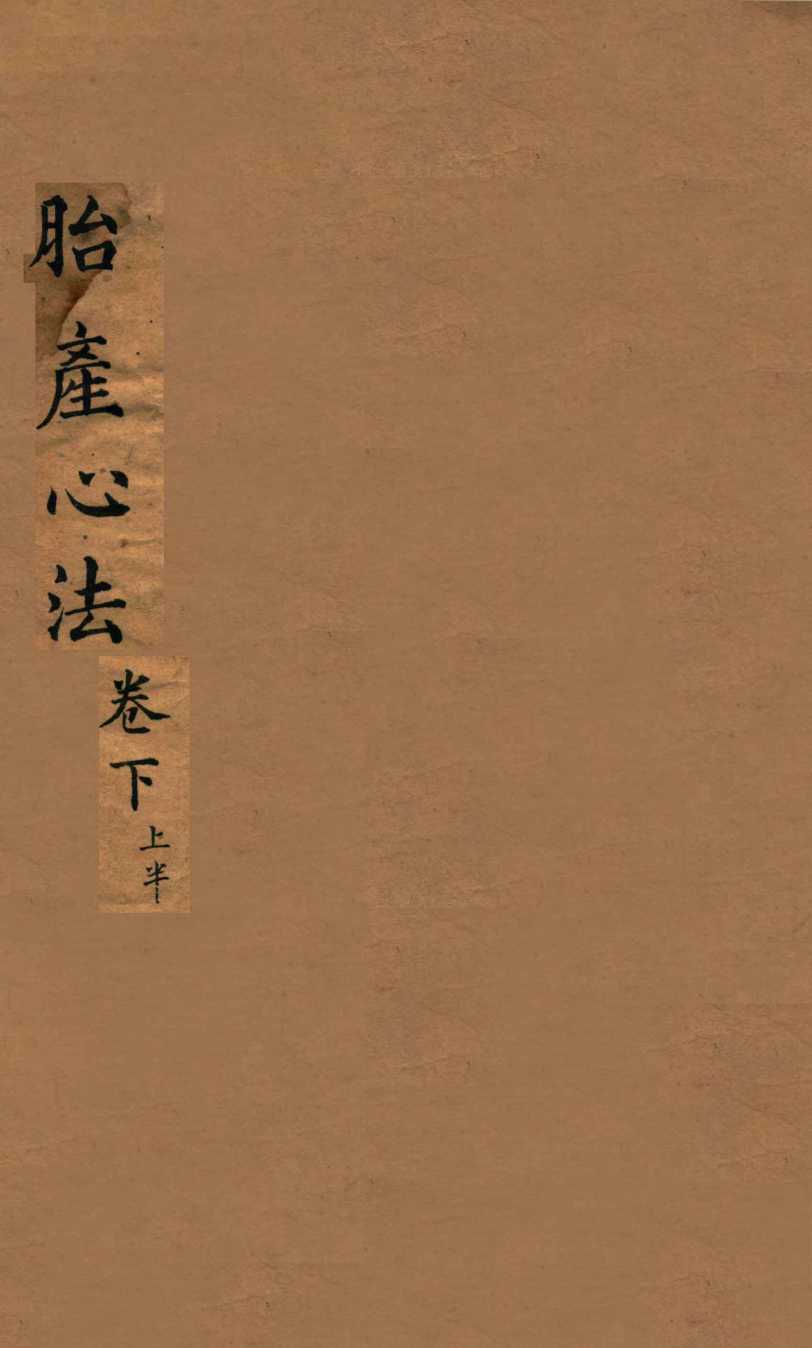 胎產心法
卷下
上半